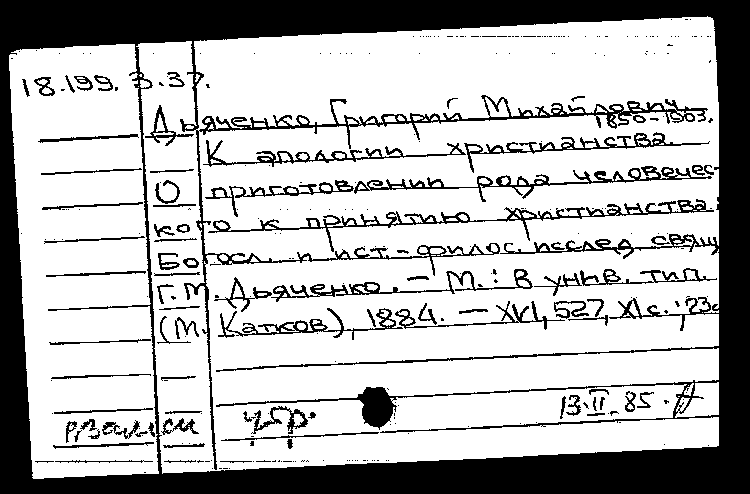 18.199.3.37.
Дьяченко, Григорий Михайлович.
1850-1903.
К апологии христианства.
О приготовлении рода человечес-
кого к принятию христианства:
Богосл. и ист.-филос. исслед. свящ
Г.М. Дьяченко. — М.: В унив. тип.
(М. Катков), 1884. — XVI, 527, XI с.; 23с
13.II.85.